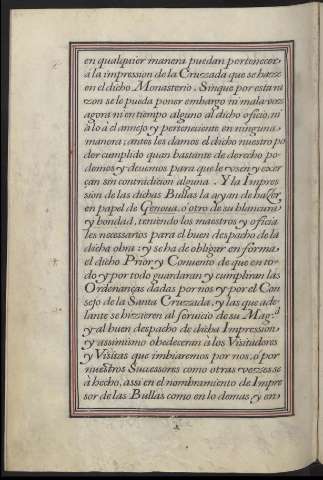 en qualquier manera puedan pertenecer
a la impression de la Cruzada que se haze
en el dicho Monasterio. Sin que por esta ra
zon se le pueda poner embargo ni mala voz
agora ni en tiempo alguno al dicho oficio, ni
a lo a el annejo y perteneciente en ninguna
manera; antes les damos el dicho nuestro po
der cumplido quan bastante de derecho po
demos y deuemos para que le vsen y exer
çan sin contradicion alguna. Y la Impres
sion de las dichas Bullas la ayan de hazer
en papel de Genoua, o otro de su blancura
y bondad, teniendo los maestros y oficia
les necessarios para el buen despacho de la
dicha obra: y se ha de obligar en forma
el dicho Prior y Conuento de que en to
do y por todo guardaran y cumpliran las
Ordenanças dadas por nos y por el Con
sejo de la Santa Cruzada, y las que ade
lante se hizieren al seruicio de su Mag.d
y al buen despacho de dicha Impression
y assimismo obedeceran a los Visitadores
y Visitas que imbiaremos por nos, o por
nuestros Successores como otras vezes se
a hecho, assi en el nombramiento de Impre
sor de las Bullas como en lo demas y en